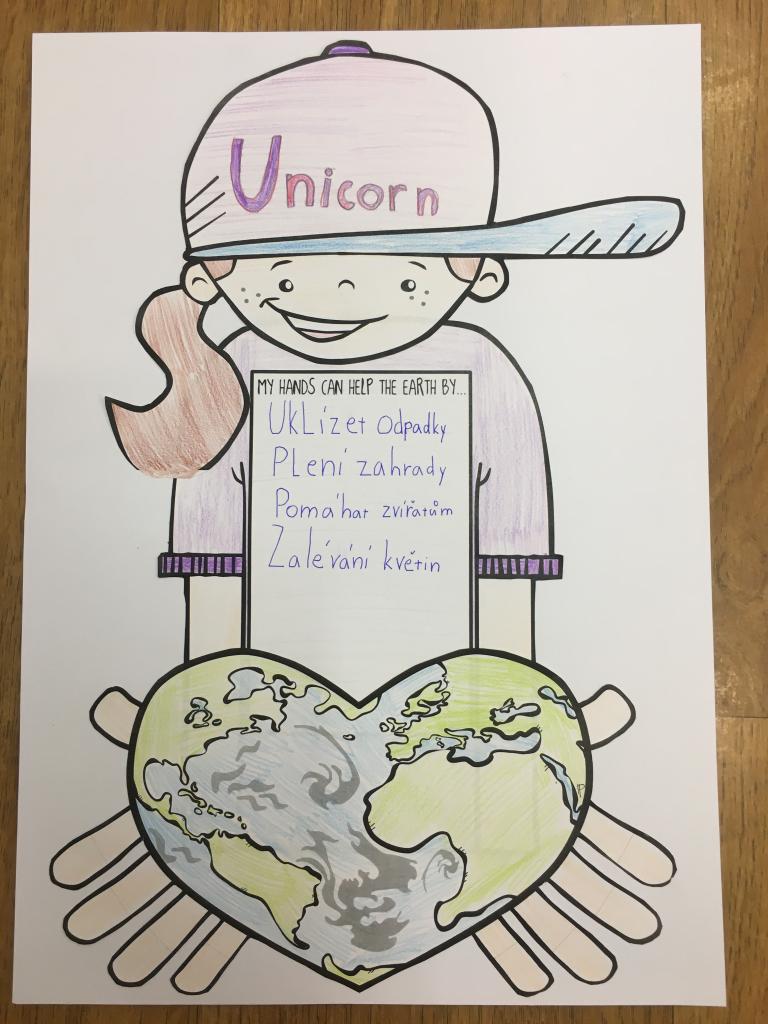 Unicorn
MY HANDS CAN HELP THE EARTH BY...
UKLízet odpadky
PLení zahrady
Pomáhat zvířatům
Zalévání květin